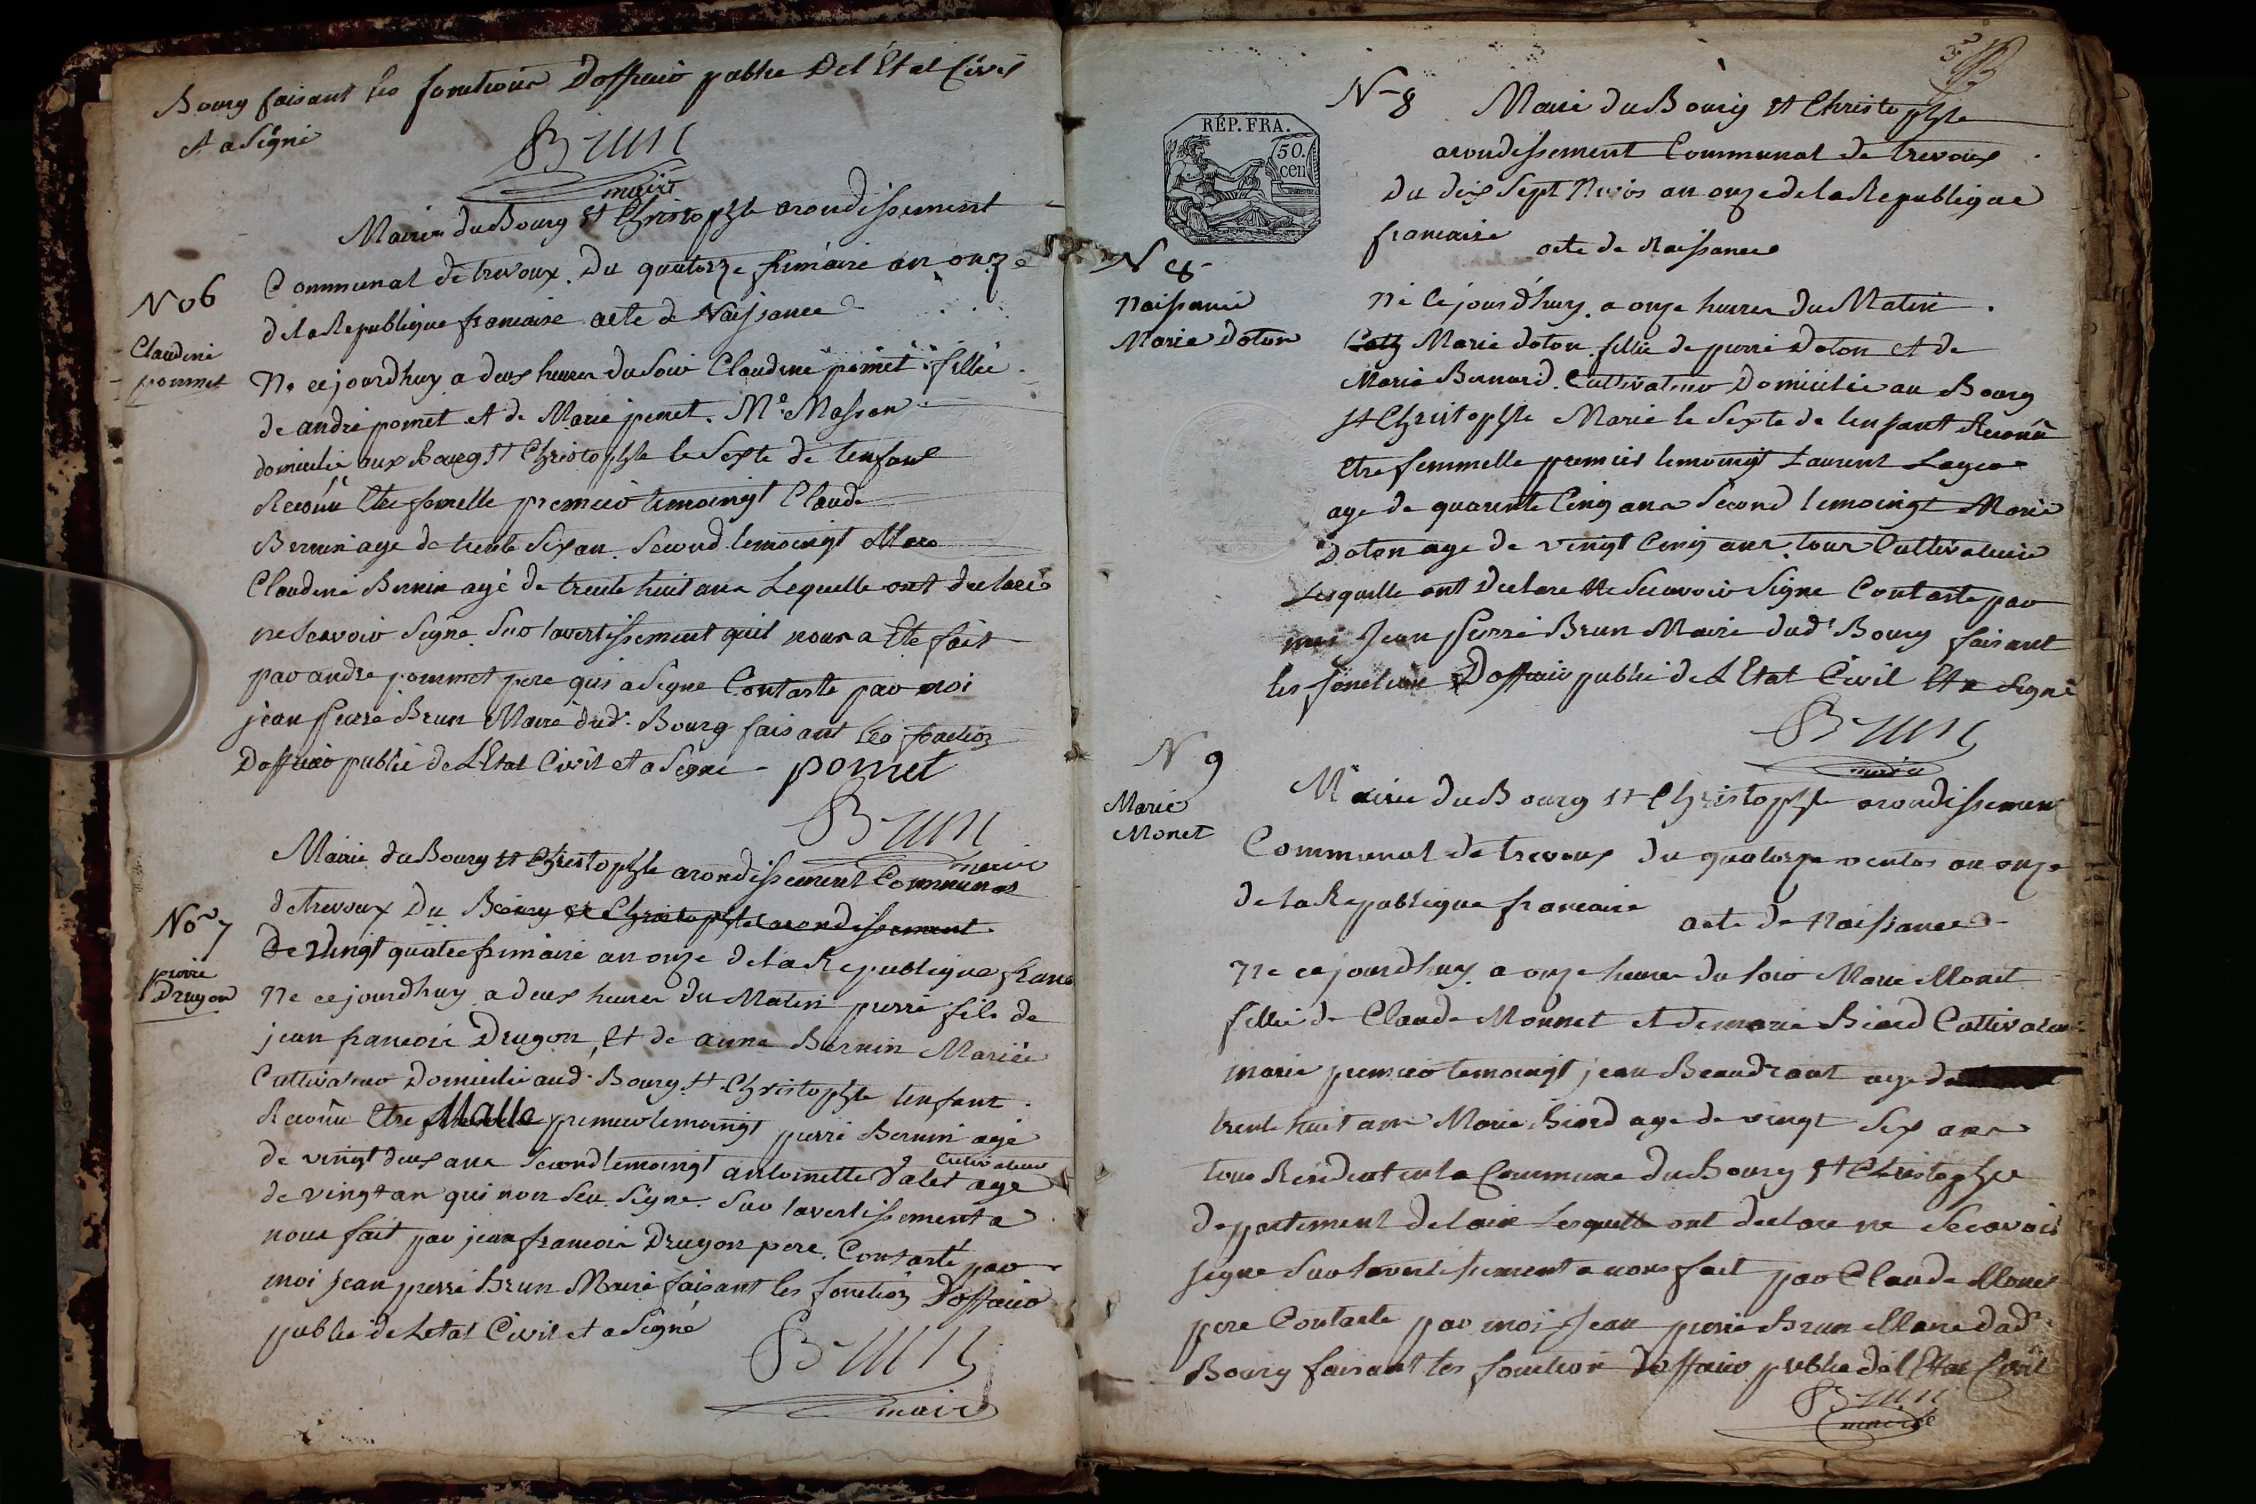 Bourg faisant les fonctions Dofficié public Del Etat Civil
et a Signé
Brun
maire
Mairie du Bourg St Christophle arondissement
Communal de trevoux. Du quatorze frimaire an onze
de la Republique francaise acte de Naissance
No 6
Claudine
pommet
Ne ce jourdhuy a deux heures du Soir Claudine pomet fillie
de andré pomet et de Marie penet. Me Masson
domicilié aux Bourg St Christophle le Sexte de lenfant
Reconu Etre femelle premier temoingt Claude
Bernin age de trente Six an. Second temoingt
Claudine Bernin agé de trente huit ans Lequelle ont declaré
ne Scavoir Signe Sur lavertissement quil nous a Ete fait
par andre pommet pere qui a Signe Contaste par moi
jean pierre Brun Maire dud. Bourg faisant Les fonction
Dofficié public de LEtat Civil et a Signé - pomet
Brun
maire
Mairie du Bourg St Christophle arondissement Communal
de trevoux Du Bourg St Christophle arondissement
No 7
pierre
Drugon
De Vingt quatre frimaire an onze de la Republique franc
Ne ce jourdhuy a deux heures du Matin pierre fils de
jean francois Drugon Et de anne Bernin Mariée
Cultivateur Domicilié aud. Bourg St Christophle lenfant
Reconu Etre Malle premier temoingt pierre Bernin agé
de vingt deux ans Second temoingt antoinette Valet age
Cultivateur
de vingt an qui non Seu Signe. Sur lavertissement a
nous fait par jean francois Drugon pere. Contasté par
moi Jean pierre Brun Maire faisant les fonction Dofficié
public de Letat Civil et a Signé
Brun
maire
3
N 8 Mairie du Bourg St Christophle
arondissement Communal de trevoux
du dix Sept Nivos an onze de la Republique
francaise acte de Naissance
RÉP. FRA.
50.
cen
N 8
Naissance
Marie Doton
Né Ce jourdhuy a onze heures du Matin
Marie doton fillie de pierre Doton et de
Marie Bernard. Cultivateur Domicilié au Bourg
St Christophle Marie le Sexte de lenfant Reconu
Etre femmelle premier temoingt Laurent
age de quarente Cinq ans Second temoingt Marie
Doton age de vingt Cinq ans tous Cultivateur
Lesquelle ont Declare Ne Scavoir Signe Contaste par
moi Jean pierre Brun Maire dudt Bourg faisant
les fonction Dofficié public de LEtat Civil Et a Signé
Brun
maire
N 9
Marie
Monet
Mairie du Bourg St Christophle arondissement
Communal de trevoux du quatorze ventos an onze
de la Republique francaise acte de Naissance
Ne ce jourdhuy a onze heures du Soir Marie Monet
fillie de Claude Monnet et de marie Biard Cultivateur
marié premier temoingt jean Beaudrant age de
trente huit ans Marie Biard age de vingt Six ans
tous Residant en la Commune du Bourg St Christophle
departement de lain Lesquelle ont declare ne Scavoir
Signe Sur lavertissement a nous fait par Claude Monet
pere Contaste par moi Jean pierre Brun Maire dud.
Bourg faisant les fonction Dofficié public de l Etat Civil
Brun
maire